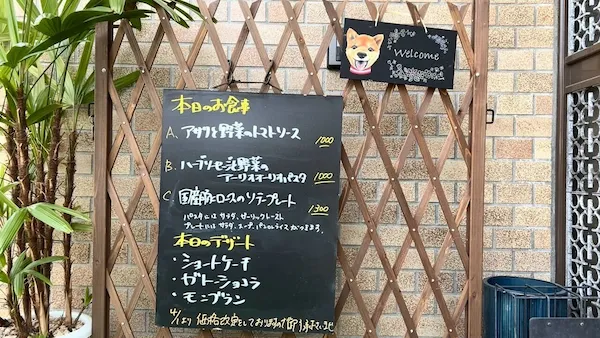 本日のお食事
A. アサリと野菜のトマトソース 1000
B. ハーブソーセージと野菜の
アーリオオーリオパスタ 1000
C 国産豚ロースのソテープレート
1300
パスタには サラダ、ガーリックトースト
プレートには サラダ、スープ、パンorライス がつきます。
本日のデザート
・ショートケーキ
・ガトーショコラ
・モンブラン
4/1より 価格改定をしております
Welcome